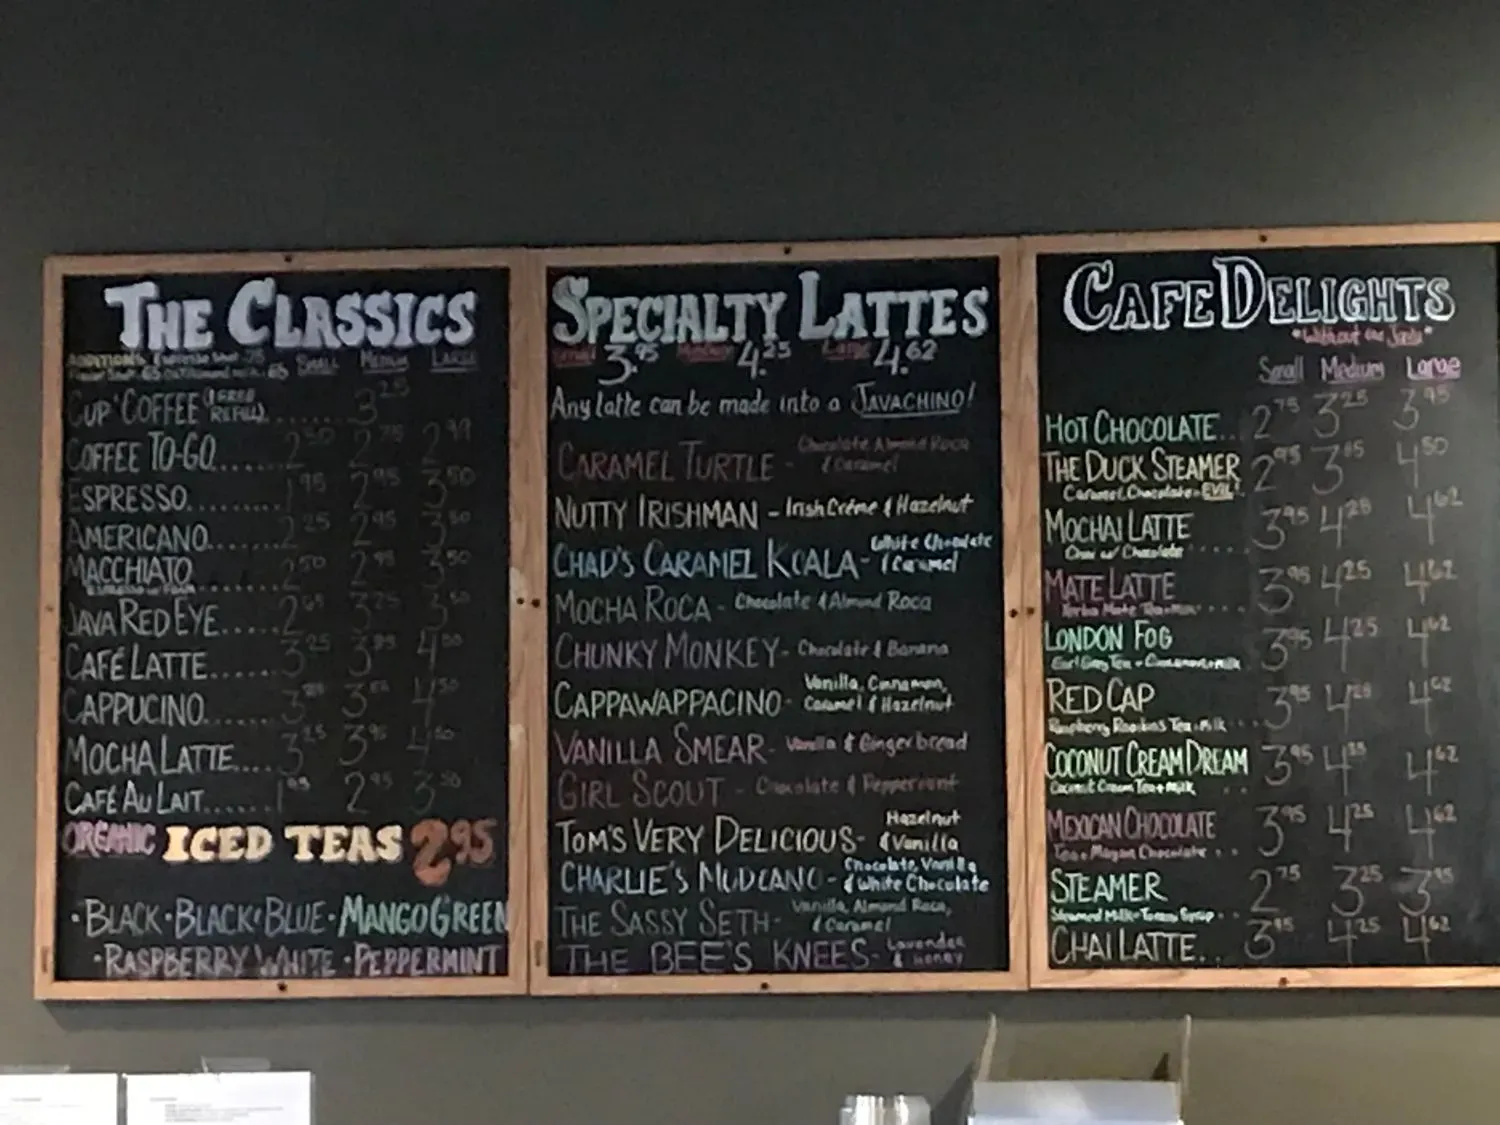 THE CLASSICS
ADDITIONS Espresso Shot .75
Flavor Shot .65 .65
SMALL MEDIUM LARGE
CUP 'COFFEE (1 FREE REFILL)...... 3.25
COFFEE TO-GO...... 2.50 2.75 2.99
ESPRESSO....... 1.95 2.95 3.50
AMERICANO...... 2.25 2.95 3.50
MACCHIATO 2.50 2.99 3.50
Espresso w/ Foam
JAVA RED EYE..... 2.65 3.25 3.50
CAFÉ LATTE..... 3.25 3.89 4.50
CAPPUCINO....... 3. 3. 4.50
MOCHA LATTE..... 3.25 3.95 4.50
CAFÉ AU LAIT...... 1.95 2.95 3.50
ORGANIC ICED TEAS 2.95
• BLACK • BLACK & BLUE • MANGO GREEN
• RASPBERRY WHITE • PEPPERMINT
SPECIALTY LATTES
Small 3.95 Medium 4.25 Large 4.62
Any latte can be made into a JAVACHINO!
CARAMEL TURTLE - Chocolate, Almond Roca & Caramel
NUTTY IRISHMAN - Irish Crème & Hazelnut
CHAD'S CARAMEL KOALA - White Chocolate & Caramel
MOCHA ROCA - Chocolate & Almond Roca
CHUNKY MONKEY - Chocolate & Banana
CAPPAWAPPACINO - Vanilla, Cinnamon, Caramel & Hazelnut
VANILLA SMEAR - Vanilla & Gingerbread
GIRL SCOUT - Chocolate & Peppermint
TOM'S VERY DELICIOUS - Hazelnut & Vanilla
CHARLIE'S MUDLANC - Chocolate, Vanilla & White Chocolate
THE SASSY SETH - Vanilla, Almond Roca, & Caramel
THE BEE'S KNEES - Lavender & Honey
CAFE DELIGHTS
"Without the Jolt"
Small Medium Large
HOT CHOCOLATE... 2.75 3.25 3.95
THE DUCK STEAMER 2.95 3. 4.50
Caramel, Chocolate = EVIL!
MOCHAI LATTE 3.95 4.25 4.62
Chai w/ Chocolate .....
MATE LATTE 3.95 4.25 4.62
Yerba Mate Tea + Milk ....
LONDON FOG 3.95 4.25 4.62
Earl Grey Tea + Cinnamon + Milk
RED CAP 3.95 4.25 4.62
Raspberry Rooibos Tea + Milk ...
COCONUT CREAM DREAM 3.95 4.25 4.62
Coconut Cream Tea + Milk ..
MEXICAN CHOCOLATE 3.95 4.25 4.62
Tea + Mayan Chocolate ..
STEAMER 2.75 3.25 3.95
Steamed Milk + Syrup ..
CHAI LATTE.. 3.95 4.25 4.62